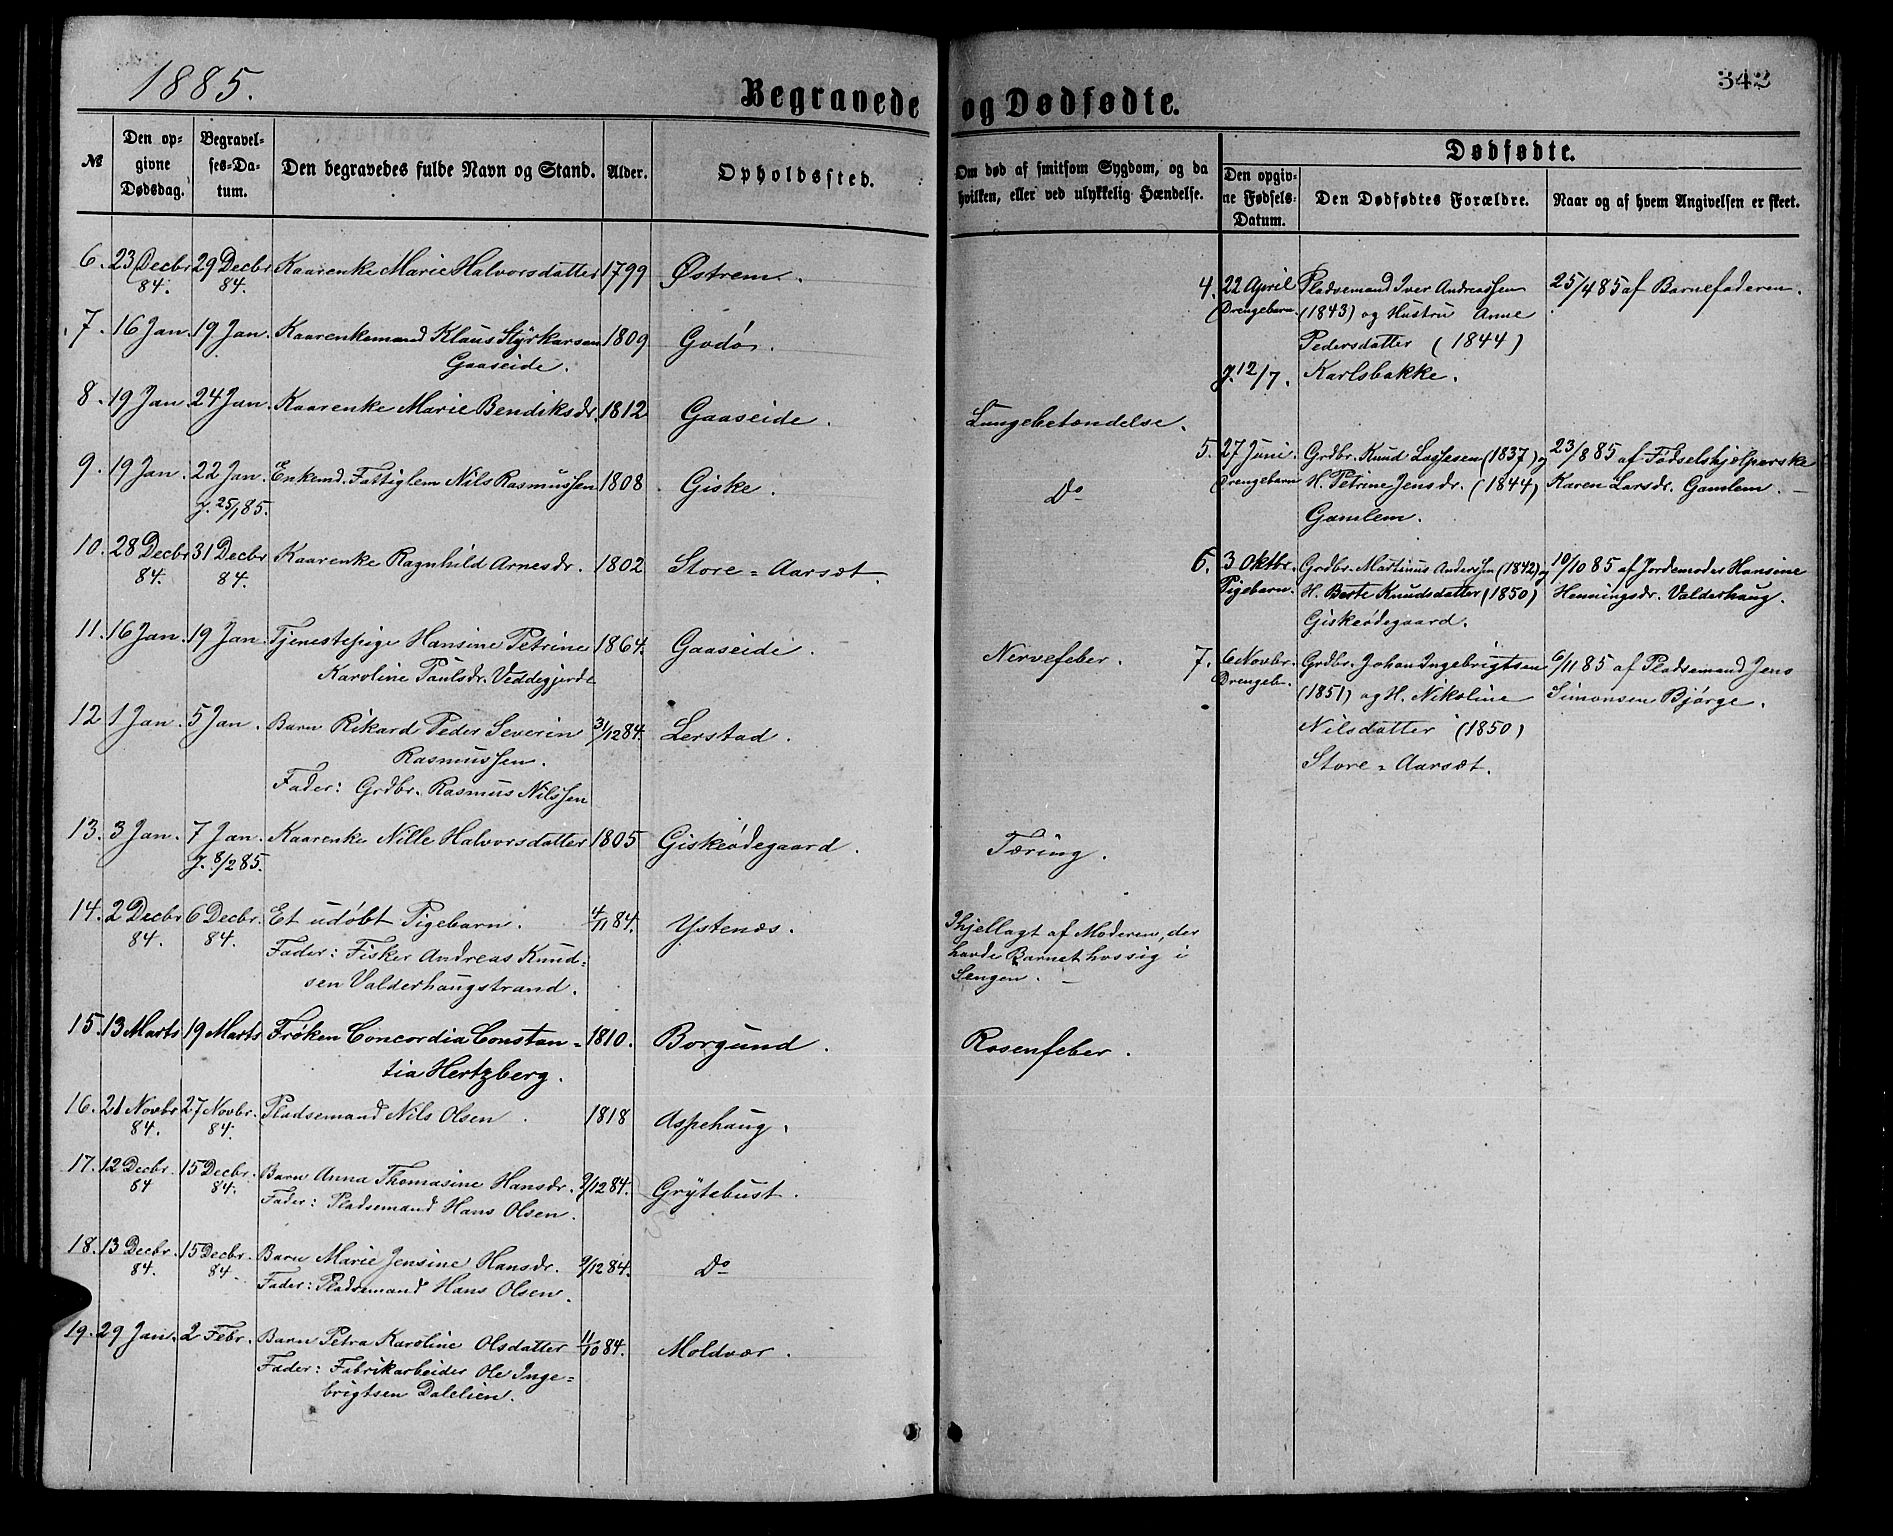 1885.
342
Begravede og Dødfødte.
№
Den opgivne Dødsdag.
Begravelses-Datum.
Den begravedes fulde Navn og Stand.
Alder.
Opholdssted.
Om død af smitsom Sygdom, og da hvilken, eller ved ulykkelig Hændelse.
Dødfødte.
Den opgivne Fødsels-Datum.
Den Dødfødtes Forældre.
Naar og af hvem Angivelsen er skeet.
6. 23 Decbr 84. 29 Decbr 84. Kaarenke Marie Halvorsdatter 1799 Østrem.
7. 16 Jan. 19 Jan. Kaarenkemand Klaus Styrkarsen 1809 Godø.
Gaaseide.
8. 19 Jan. 24 Jan. Kaarenke Marie Bendiksdr. 1812 Gaaseide. Lungebetændelse.
9. 19 Jan. 22 Jan. Enkemd. Fattiglem Nils Rasmussen 1808 Giske. Do
J. 25/1 85.
10. 28 Decbr 84. 31 Decbr 84. Kaarenke Ragnhild Arnesdr. 1802 Store=Aarsæt.
11. 16 Jan. 19 Jan. Tjenestepige Hansine Petrine 1864. Gaaseide. Nervefeber.
Karoline Paulsdr. Veddegjerde
12 1 Jan. 5 Jan. Barn Rikard Peder Severin 31/12 84. Lerstad.
Rasmussen.
Fader: Grdbr. Rasmus Nilssen
13. 3 Jan. 7 Jan. Kaarenke Nille Halvorsdatter 1805 Giskeødegaard. Tæring.
J. 8/2 85.
14. 2 Decbr 84. 6 Decbr. 84. Et udøbt Pigebarn. 4/11 84. Ystenæs. Ihjellagt af Moderen, der
Fader: Fisker Andreas Knud= havde Barnet hos sig i
sen Valderhaugstrand. Sengen. —
15. 13 Marts 19 Marts Frøken Concordia Constan= 1810. Borgund. Rosenfeber.
tia Hertzberg.
16. 21 Novbr 84. 27 Novbr. 84. Pladsemand Nils Olsen. 1818 Aspehaug.
17. 12 Decbr. 84 15 Decbr. 84. Barn Anna Thomasine Hansdr. 9/12 84. Grytebust.
Fader: Pladsemand Hans Olsen.
18. 13 Decbr. 84. 15 Decbr. 84. Barn Marie Jensine Hansdr. 9/12 84. Do
Fader: Pladsemand Hans Olsen.
19. 29 Jan. 2 Febr. Barn Petra Karoline Olsdatter 11/10 84. Moldvær.
Fader: Fabrikarbeider Ole Inge=
brigtsen Dalelien.
4. 22 April Pladsemand Iver Andreassen 25/4 85 af Barnefaderen.
Drengebarn. (1843) og Hustru Anne
Pedersdatter (1844)
J. 12/7. Karlsbakke.
5. 27 Juni. Grdbr. Knud Lassesen (1837) og 23/8 85 af Fødselshjælperske
Drengebarn H. Petrine Jensdr. (1844) Karen Larsdr. Gamlem. —
Gamlem.
6. 3 Oktbr. Grdbr. Martinus Anderssen (1842) og 10/10 85 af Jordemoder Hansine
Pigebarn. H. Berte Knudsdatter (1850) Henningsdr. Valderhaug.
Giskeødegaard.
7. 6 Novbr. Grdbr. Johan Ingebrigtsen 6/11 85 af Pladsemand Jens
Drengeb. (1851) og H. Nikoline Simonsen Bjørge.
Nilsdatter (1850)
Store=Aarsæt.